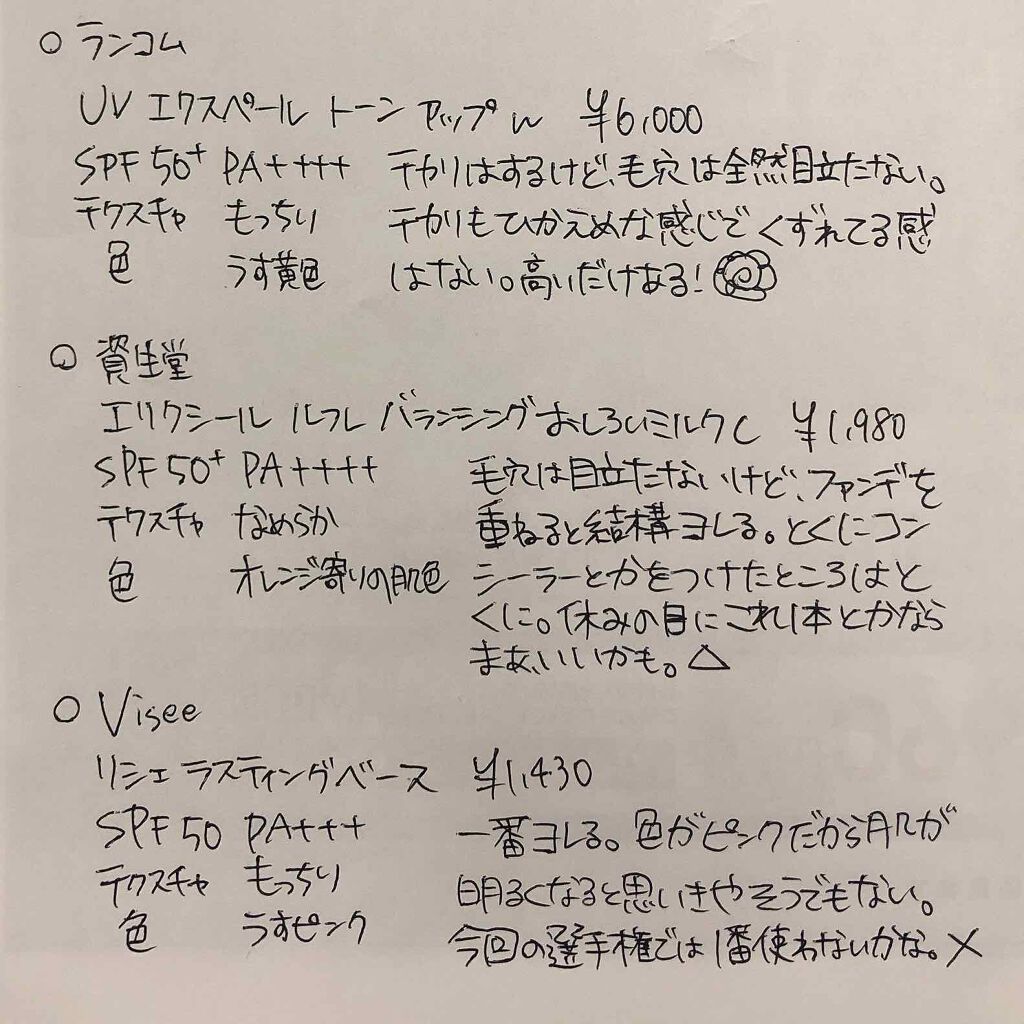 ○ ランコム
UV エクスペール トーン アップ n ¥6,000
SPF 50+ PA++++ テカりはするけど、毛穴は全然目立たない。
テクスチャ もっちり テカりもひかえめな感じでくずれてる感
色 うす黄色 はない。高いだけある!
○ 資生堂
エリクシール ルフレ バランシング おしろいミルク C ¥1,980
SPF 50+ PA++++ 毛穴は目立たないけど、ファンデを
テクスチャ なめらか 重ねると結構ヨレる。とくにコン
色 オレンジ寄りの肌色 シーラーとかをつけたところはと
くに。休みの日にこれ1本とかなら
まあ、いいかも。△
○ Visee
リシェ ラスティングベース ¥1,430
SPF 50 PA+++ 一番ヨレる。色がピンクだから肌が
テクスチャ もっちり 明るくなると思いきやそうでもない。
色 うすピンク 今回の選手権では1番使わないかな。×